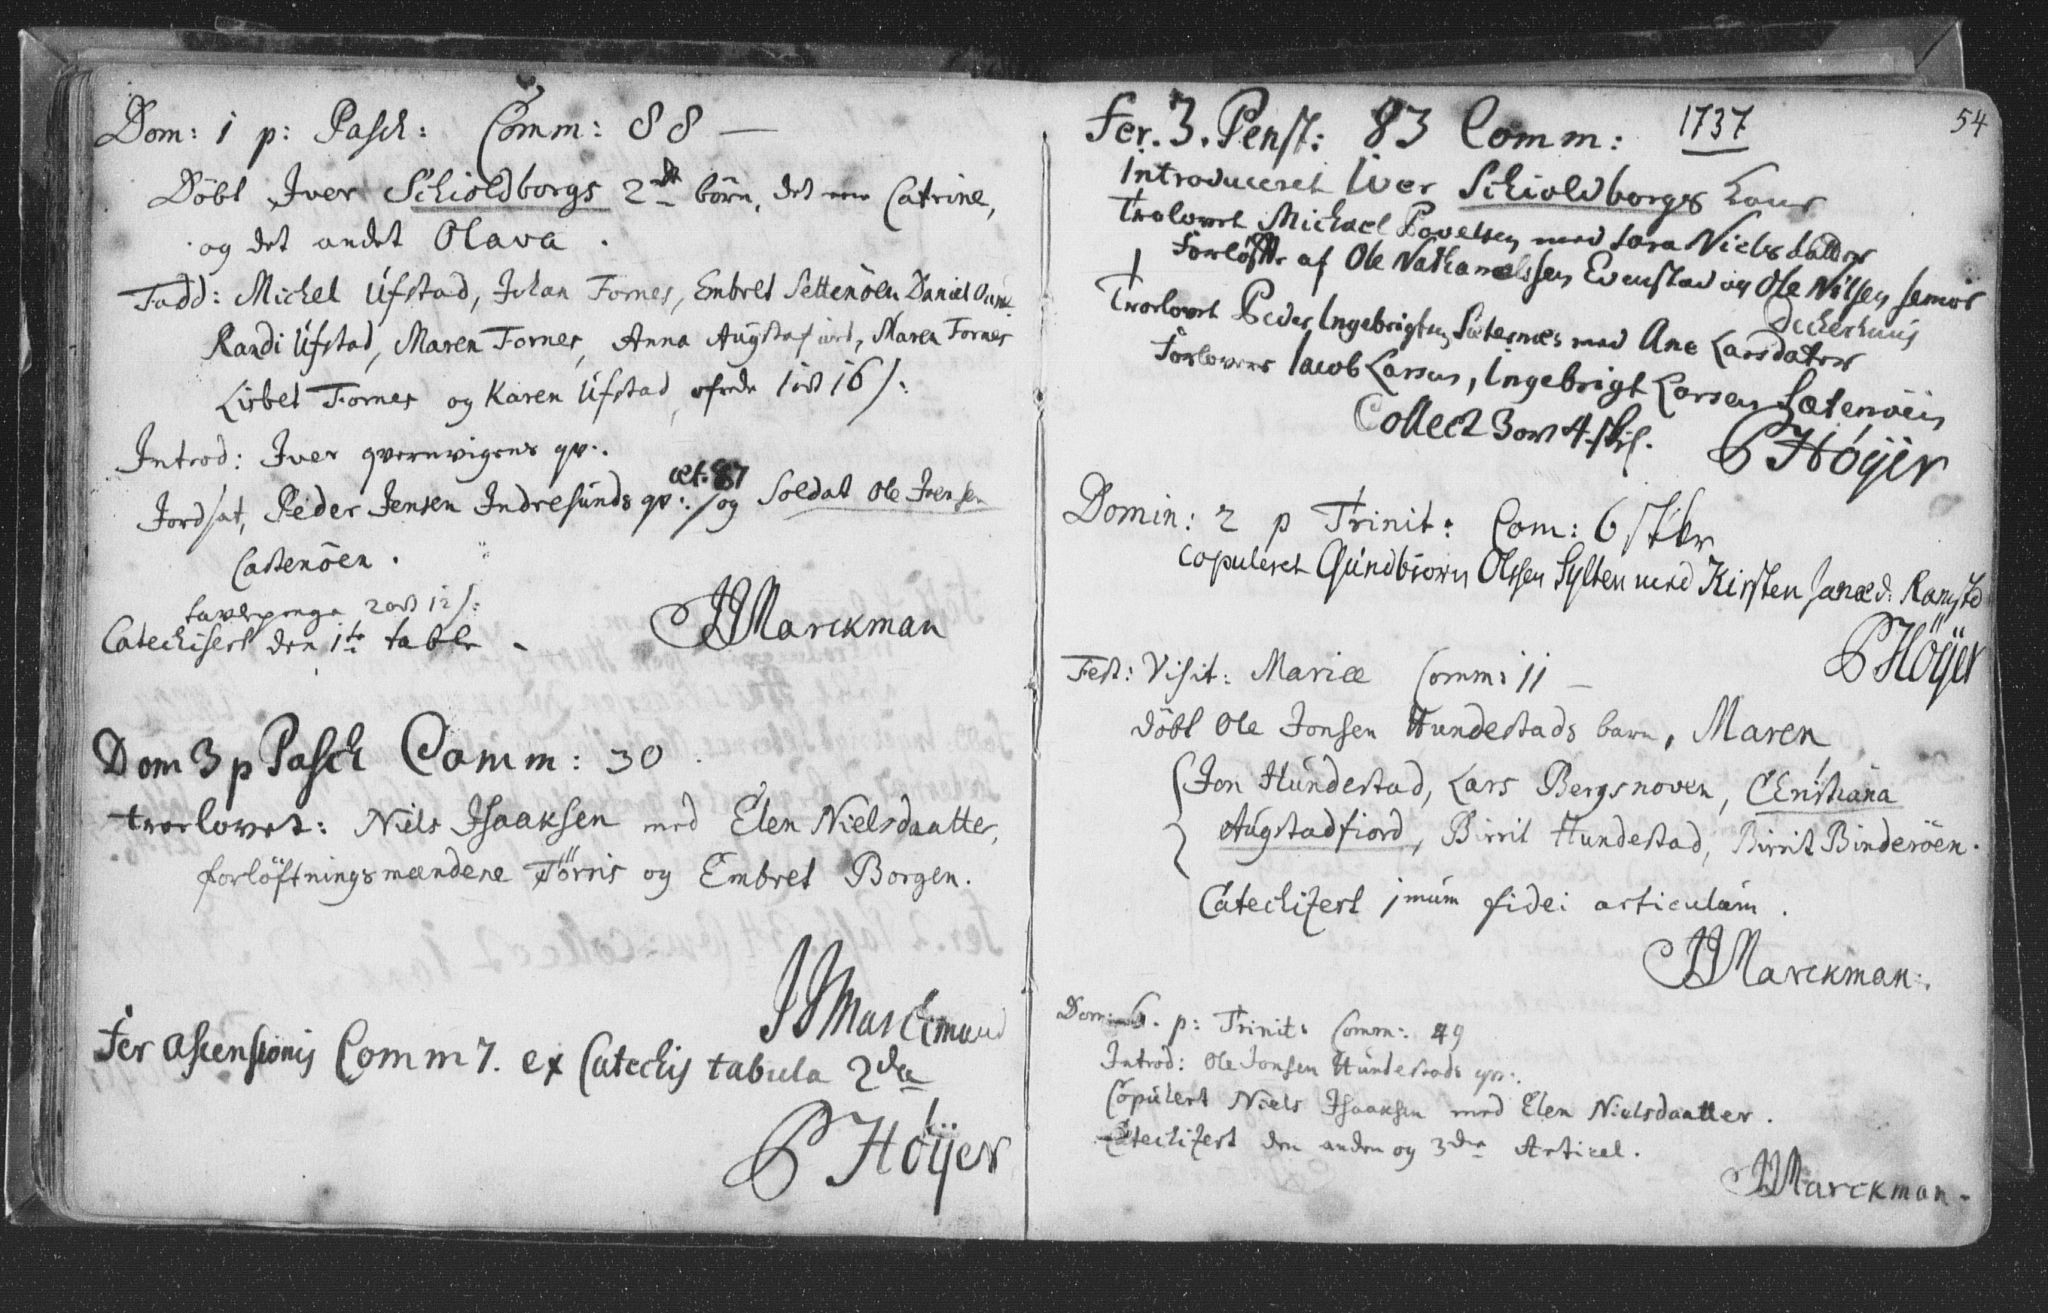 Dom: 1 p: Pasch: Comm: 88 —
Döbt Iver Schioldborgs 2de börn, det ene Catrine,
og det andet Olava.
Fadd: Michel Ufstad, Johan Fornes, Embret Settenöen Daniel
Randi Ufstad, Maren Fornes, Anna Augstafiord, Maren Fornes
Lisbet Fornes og Karen Ufstad, ofrede 1 ort 16 s:
Introd: Iver qvernvigens qv:.
Jordsat, Peder Jensen Indresunds qv: æt: 87 / og Soldat Ole Ivensen
Castenöen.
tavlepenge 2 ort 12 s:
Catechisert den 1te table - JJMarckman
Dom 3 p Pasch Comm: 30.
troelovet: Niels Isaaksen med Elen Nielsdaatter,
forlöftningsmændene Törris og Embret Borgen.
JJMarckmand
Fer Ascensionis Comm 7. ex Catechis tabula 2da
P Höÿer
Fer. 3. Penst: 83 Comm: 1737 54
Introduceret Iver Schioldborgs Kone
Trolovet Michael Povelsen med Sara Niels datter
Forlöfte af Ole Nathanaelssen Evenstad og Ole Nilsen semoe
Trolovet Peder Ingebrigtsen Sæternæs med Ane Larsdatter
Forlovere Iacob Larsen, Ingebrigt Larsen Sætenöen
Collect 3 ort 4 skil.
P Höÿer
Domin: 2 p Trinit: Com: 6 stkr
copuleret Gundbiorn Olssen Sylten med Kirsten Janæ d: Ramstd
P Höÿer
Fest: Visit: Mariæ Comm: 11 —
döbt Ole Jonsen Hundestads barn, Maren,
Jon Hundestad, Lars Bergsnoven, Christiana
Augstadfiord, Birrit Hundestad, Birrit Binderöen.
Catechizert 1mum fidei articulum.
JJMarckman:.
Dom: 6. p: Trinit: Comm: 49
Introd: Ole Jonsen Hundestads qv:.
Copulert Niels Isaaksen med Elen Nielsdaatter.
Catechizert den anden og 3die Articel.
JJMarckman.